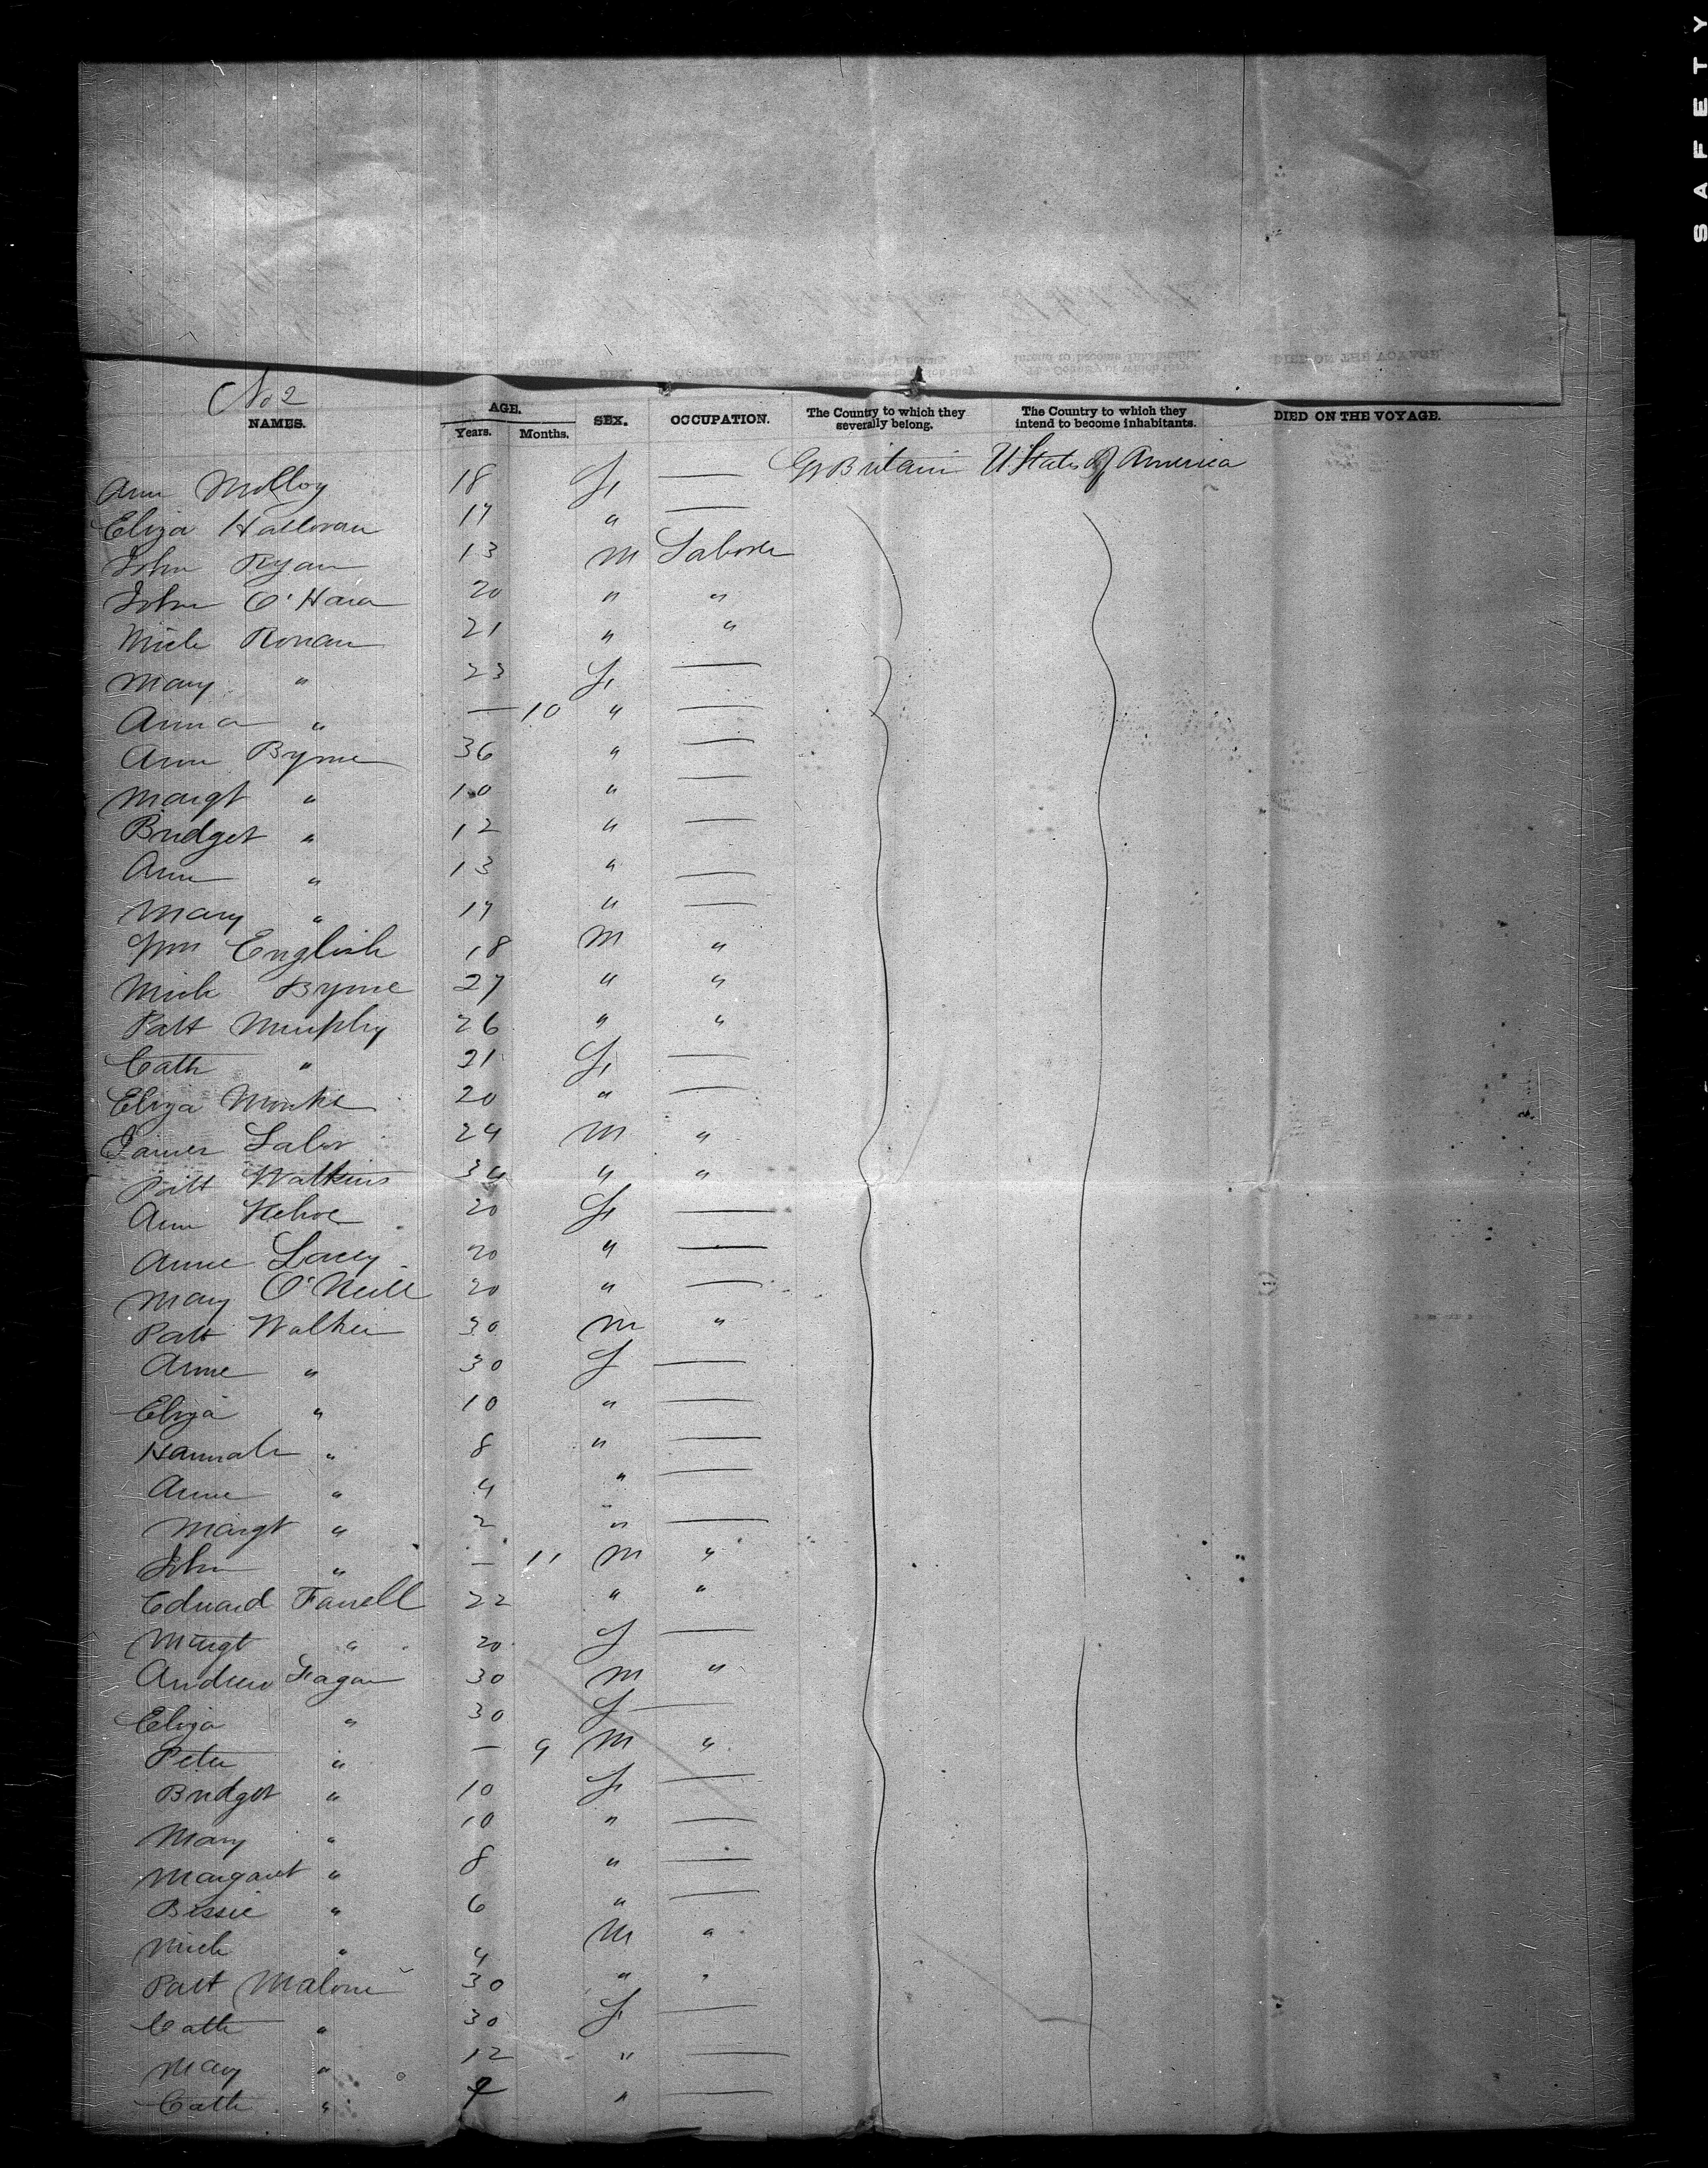 SAFETY
No 2
NAMES. AGE. Years. Months. SEX. OCCUPATION. The Country to which they severally belong. The Country to which they intend to become inhabitants. DIED ON THE VOYAGE.
Ann Molloy 18 f. — Gt Britain U States of America
Eliza Halloran 17 " —
John Ryan 13 M Laborer
John O'Hara 20 " "
Mich Ronan 21 " "
Mary " 23 f. —
Anna " — 10 " —
Ann Byrne 36 " —
Margt " 10 " —
Bridget " 12 " —
Ann " 13 " —
Mary " 17 " —
Wm English 18 M "
Mich Byrne 27 " "
Patt Murphy 26 " "
Cath " 21 f. —
Eliza Monks 20 " —
James Lalor 24 M "
Patt Watkins 34 " "
Ann Kehoe 20 f. —
Anne Lacey 20 " —
Mary O'Neill 20 " —
Patt Walker 30 M "
Anne " 30 f —
Eliza " 10 " —
Hannah " 8 " —
Anne " 4 " —
Margt " 2 " —
John " — 11 M "
Edward Farrell 22 " "
Margt " 20 f —
Andrew Fagan 30 M "
Eliza " 30 f —
Peter " — 9 M "
Bridget " 10 f. —
Mary " 10 " —
Margaret " 8 " —
Bessie " 6 " —
Mich " 4 M "
Patt Malone 30 " "
Cath " 30 f. —
Mary " 12 " —
Cath " " —